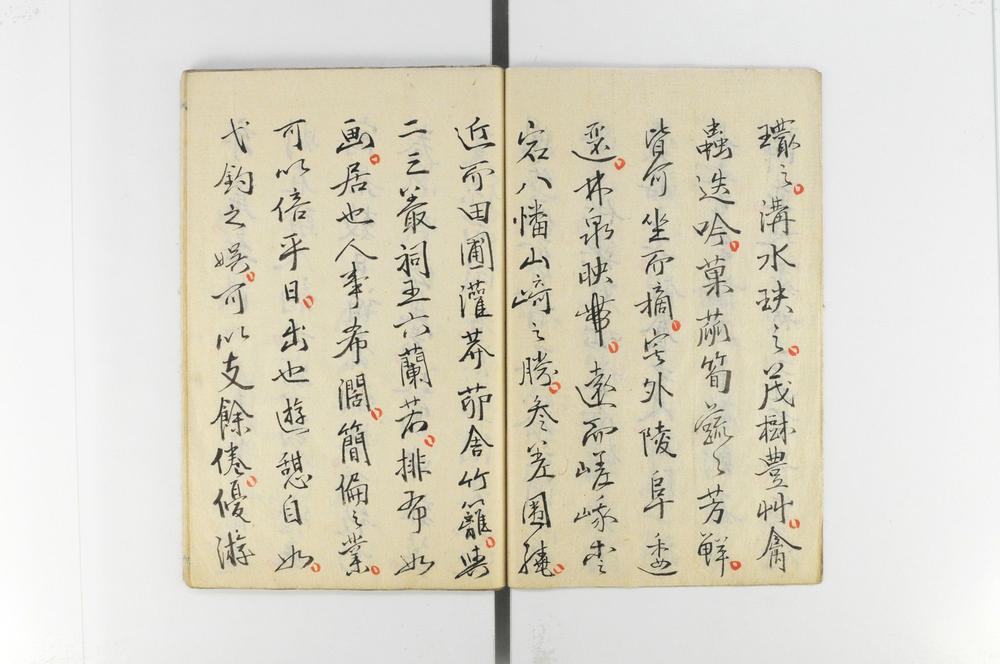 環之。溝水玦之。茂樹豊艸。禽
蟲迭吟。菓蓏筍蔬之芳鮮。
皆可坐而摘。宅外陵阜委
迤。林泉映帶。遠而嵯峨愛
宕八幡山崎之勝。參差圍繞。
近而田圃灌莽茆舍竹籬。與
二三叢祠五六蘭若。排布如
画。居也人事希濶。簡編之業。
可以倍平日。出也遊憩自如。
弋釣之娯。可以支餘倦。優游